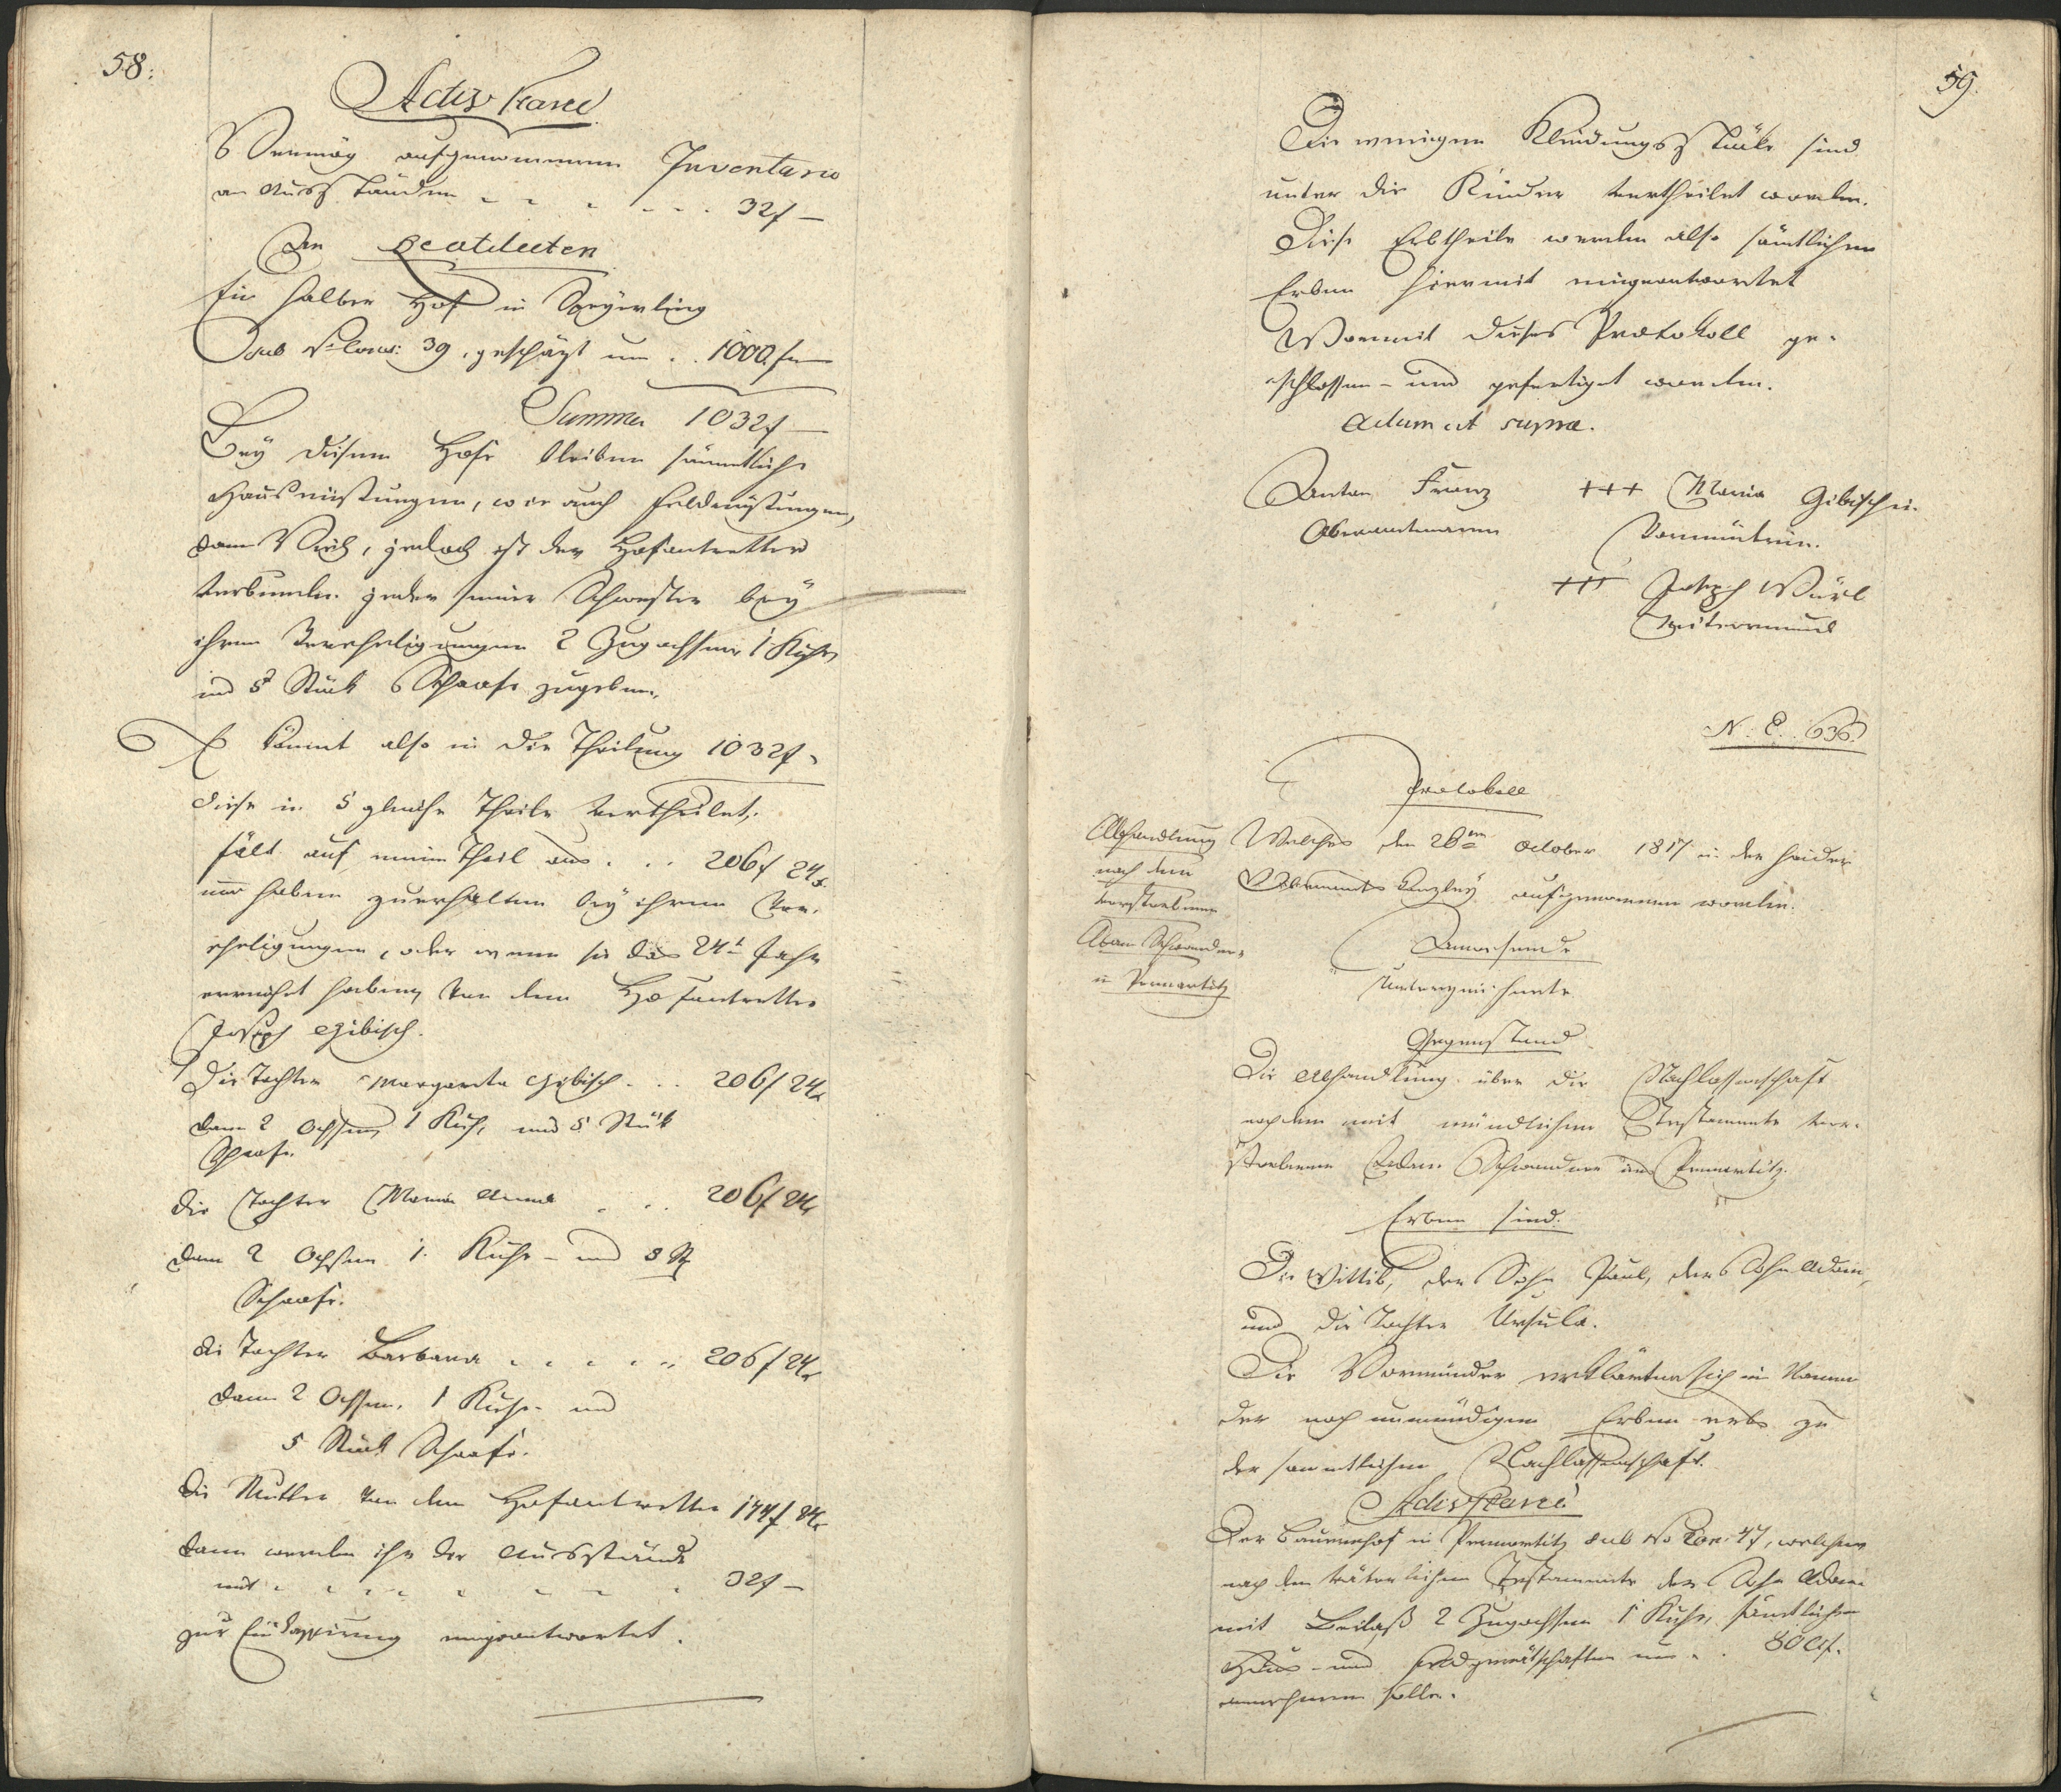 58:
Activ Stand
Vermög aufgenommenen Inventario
an Ausständen - - - - - 32f —
An Realitæten
Ein halber Hof in Speyerling
sub No Cons: 39, geschäzt um . . 1000 f —
Summa 1032f —
Bey diesem Hofe bleiben sämmtliche
Hausrüstungen, wie auch Feldrüstungen,
dann Vieh, jedoch ist der Hofantretter
verbunden jeder seiner Schwester bey
ihren Verehligungen 2 Zugochsen, 1 Kuhe,
und 5 Stück Schaafe zugeben.
Es kömmt also in die Theilung 1032f,
diese in 5 gleiche Theile vertheilet,
fält auf einen Theil aus . . . 206f 24x
und haben zuerhalten bey ihren Ver-
ehligungen, oder wenn sie das 24t Jahr
erreicht haben, von dem Hofantretter
Joseph Gibisch.
Die Tochter Margareta Gibisch . . . 206f 24x
dann 2 Ochsen, 1 Kuh, und 5 Stük
Schaafe.
die Tochter Maria Anna . . . 206f 24x
dann 2 Ochsen 1. Kuhe - und 5 St
Schaafe.
die Tochter Barbara - - - - - 206f 24x
dann 2 Ochsen, 1 Kuhe - und
5 Stück Schaafe.
die Mutter von dem Hofantretter 174f 24x
dann werden ihr die Ausstände
mit - - - - - - - 32f —
zur Einkassirung eingeantwortet.
59.
Die wenigen Kleidungsstücke sind
unter die Kinder vertheilet worden.
Diese Erbtheile werden also sämtlichen
Erben hiermit eingeantwortet
Wormit dieses Protokoll ge-
schlossen - und gefertiget worden.
Actum ut supra.
Anton Franz
Oberamtmann
+++ Maria Gibischin
Vormünterin.
+++ Joseph Würl
Mitvormund
N: E. 636
Protokoll
Abhandlung
nach dem
verstorbenen
Adam Schwandner
in Pernartitz
Welches den 28ten October 1817 in der Haider
Oberamts Kanzley aufgenommen worden.
Anwesende
Unterzeichnete
Gegenstand
Die Abhandlung über die Nachlassenschaft
nach dem mit mündlichen Testamente ver-
storbenen Adam Schwandner aus Pernartitz.
Erben sind.
Die Wittib, der Sohn Paul, der Sohn Adam,
und die Tochter Ursula.
Die Vormünder erklärten sich im Namen
der noch unmündigen Erben erbs zu
der sammtlichen Nachlassenschaft.
Activ Stand
Der Bauernhof in Pernartitz sub No Con: 47, welchen
nach dem väterlichen Testamente der Sohn Adam
mit Beilaß 2 Zugochsen 1 Kuhe, sämtlichen
Haus - und Feldgeräthschaften um . . 800f.
annehmen solle.